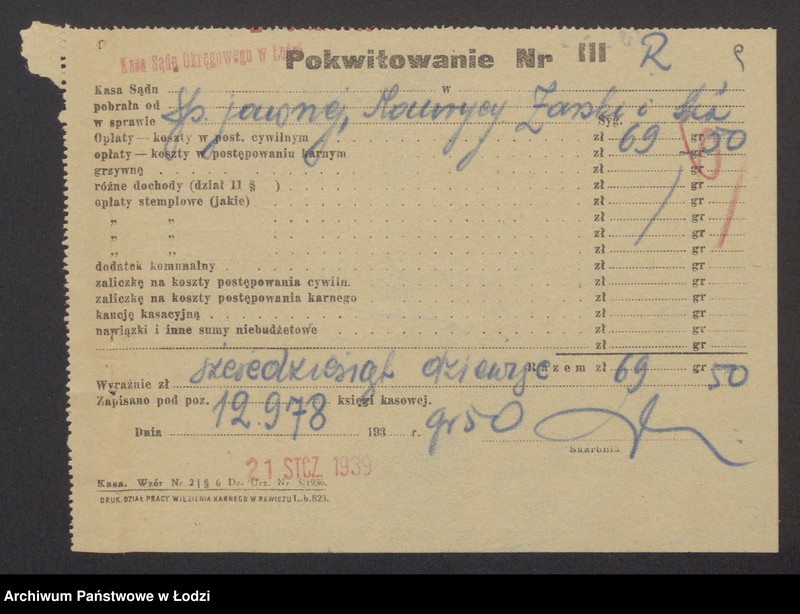 Kasa Sądu Okręgowego w Łodzi
Pokwitowanie Nr III R
Kasa Sądu w
pobrała od Sp. jawnej, Maurycy Zarski i Ska
w sprawie Syg.
Opłaty — koszty w post. cywilnym zł 69 gr 50
opłaty — koszty w postępowaniu karnym zł gr
grzywnę zł gr
różne dochody (dział II § ) zł gr
opłaty stemplowe (jakie) zł gr
„ „ zł gr
„ „ zł gr
„ „ zł gr
dodatek komunalny zł gr
zaliczkę na koszty postępowania cywiln. zł gr
zaliczkę na koszty postępowania karnego zł gr
kaucję kasacyjną zł gr
nawiązki i inne sumy niebudżetowe zł gr
zł gr
Razem zł 69 gr 50
Wyraźnie zł sześćdziesiąt dziewięć
Zapisano pod poz. 12.978 księgi kasowej.
Dnia 193 r. gr 50
Skarbnik
21 STCZ 1939
Kasa. Wzór Nr 2 | § 6 Dz. Urz. Nr 5/1936.
DRUK. DZIAŁ PRACY WIĘZIENIA KARNEGO W RAWICZU L. b. 823.
Archiwum Państwowe w Łodzi